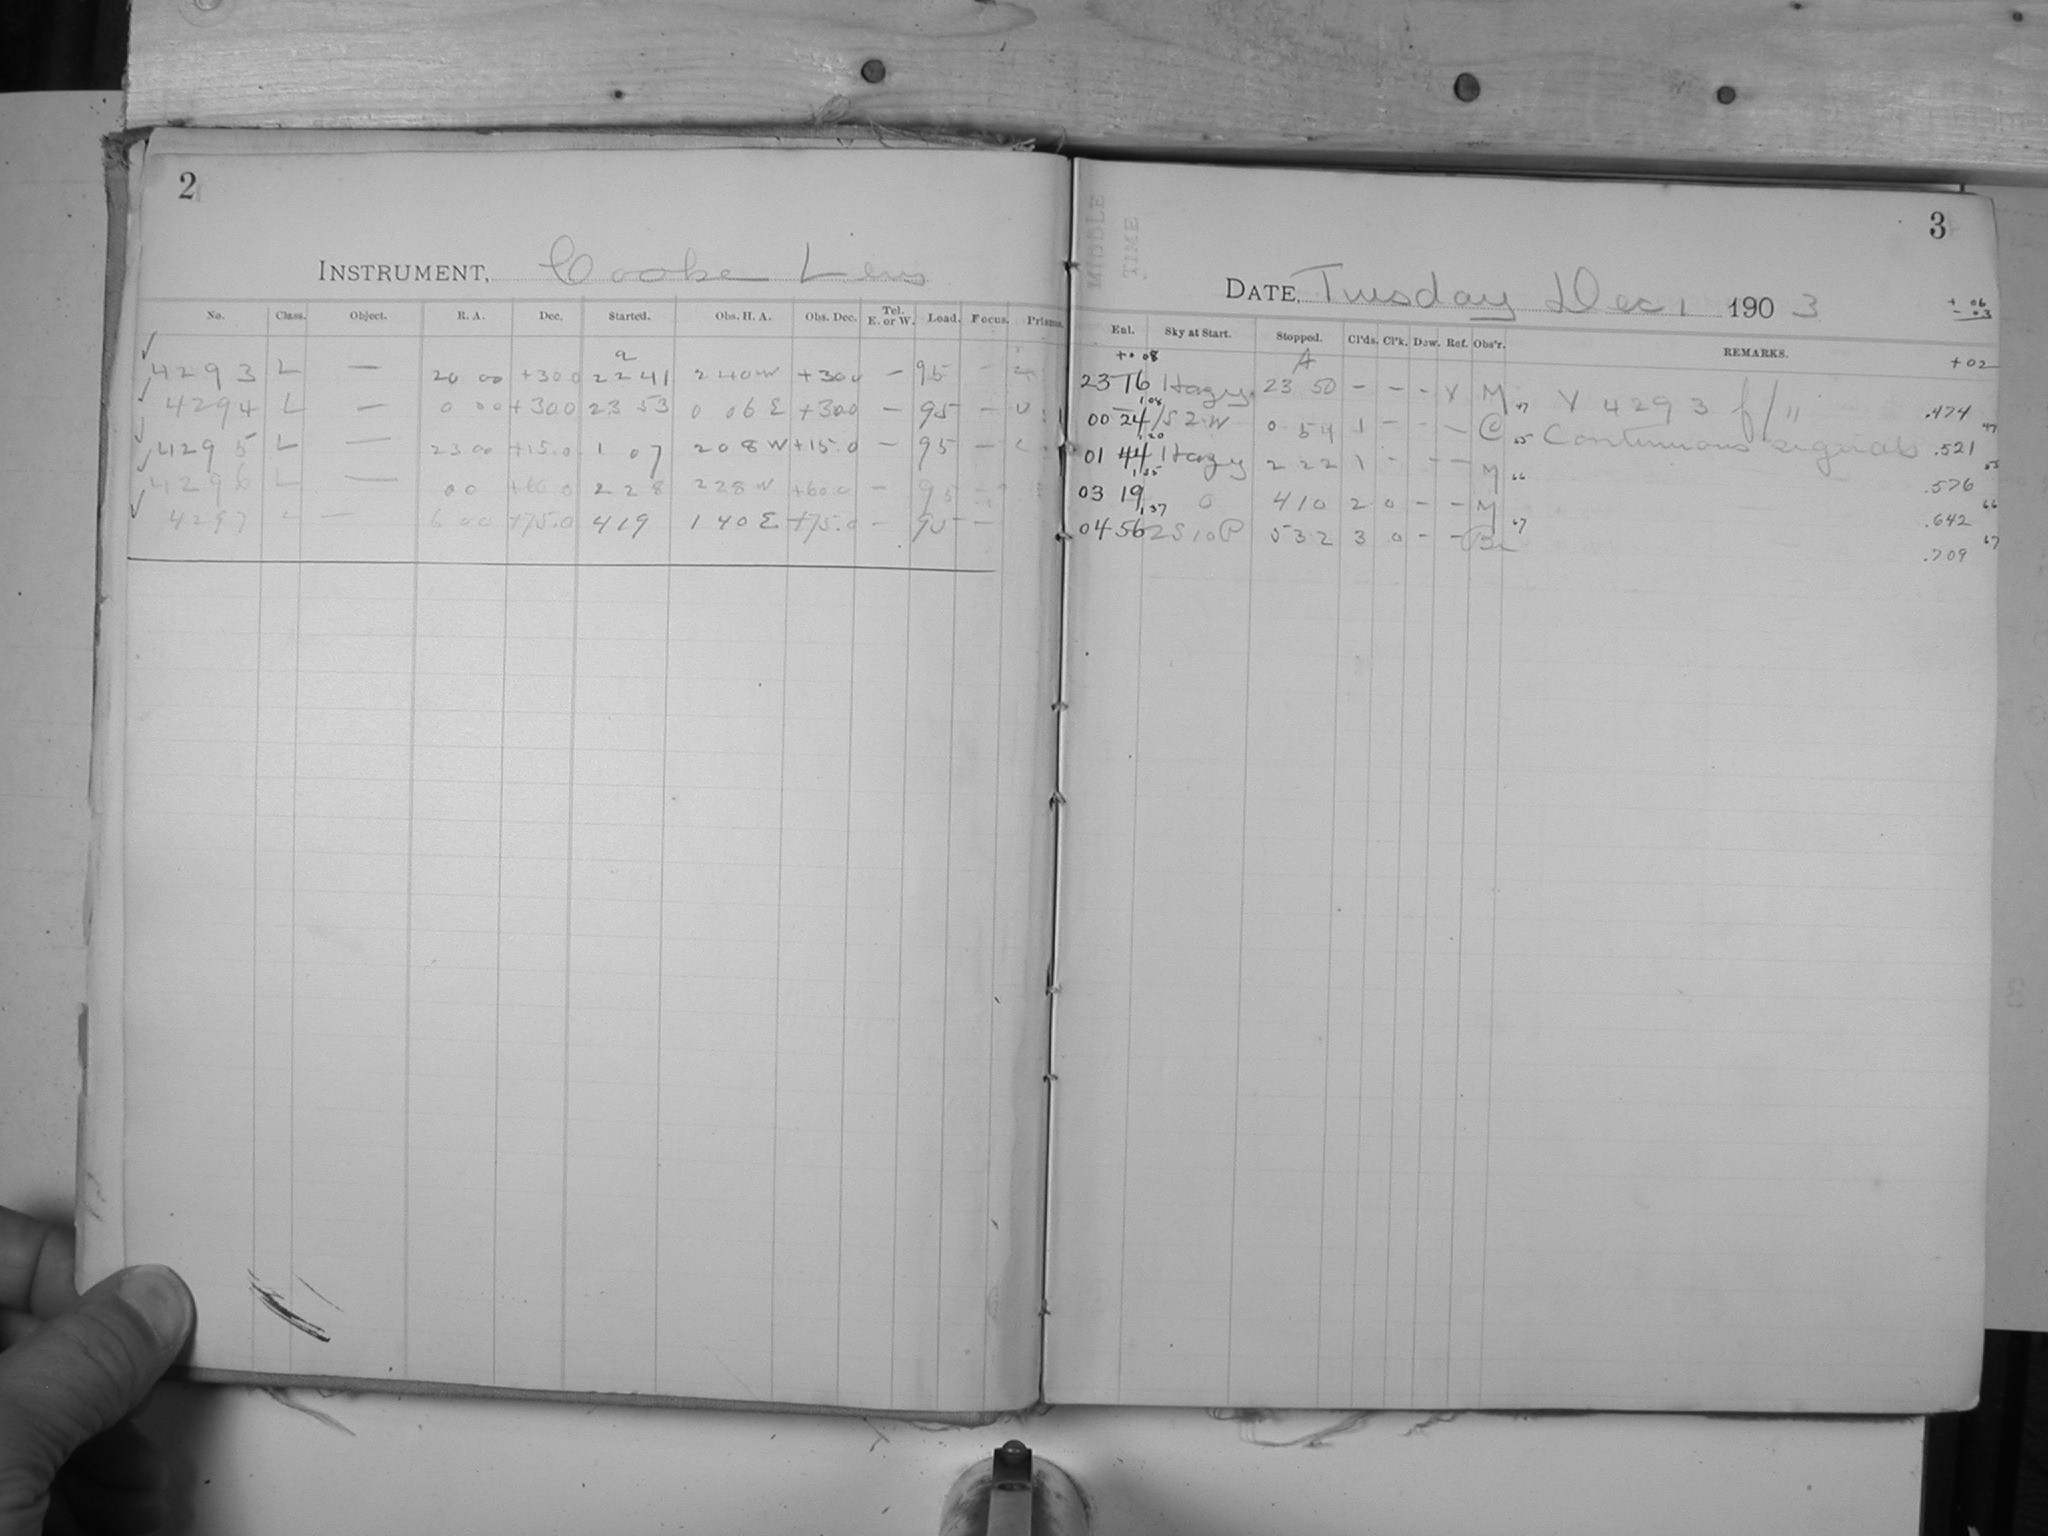 2
INSTRUMENT, Cooke Lens
No. Class. Object. R. A. Dec. Started. Obs. H. A. Obs. Dec. Tel. E. or W. Load. Focus. Prisms.
a
4293 L — 20 00 +30 0 22 41 2 40 W +30 0 — 95 —
4294 L — 0 00 +30 0 23 53 0 06 E +30 0 — 95 —
4295 L — 23 00 +15.0 1 07 2 08 W +15.0 — 95 —
4296 L — 0 0 +60 0 2 28 2 28 W +60 0 — 95 —
4297 L — 6 00 +75.0 4 19 1 40 E +75.0 — 95 —
MIDDLE TIME
3
DATE, Tuesday Dec 1 1903
+ 06
- 03
+02
Enl. Sky at Start. Stopped. Cl'ds. Cl'k. Dew. Ref. Obs'r. REMARKS.
+0 08 A
23 16 Hazy 23 50 — — — V M 47 V 4293 f/" .474
1 08 47
00 24 /S 2 W 0 54 1 — — C 55 Continuous signals .521
1 20 55
01 44 Hazy 2 22 1 - — — M 66 .576
1 35 66
03 19 0 4 10 2 0 — — M .642
1 37 67 67
04 56 2S 10P 5 32 3 0 — — Br .709